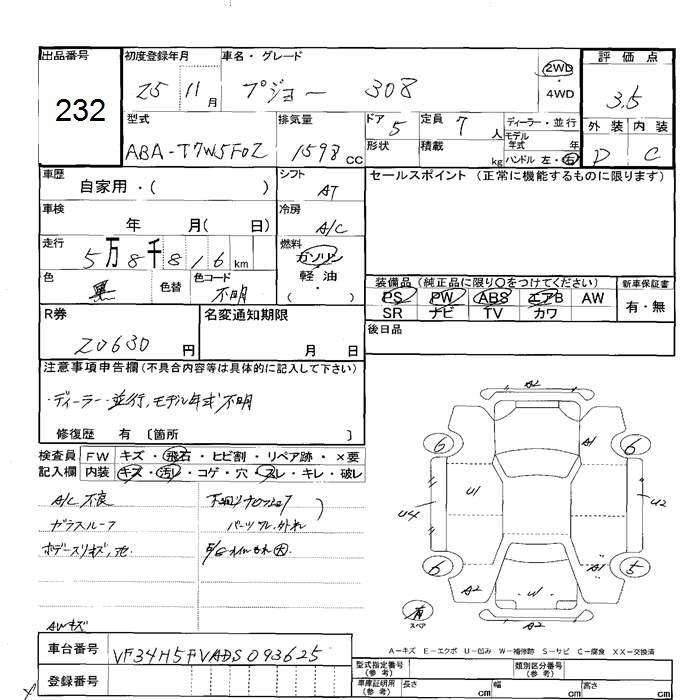 出品番号 初度登録年月 車名・グレード 評価点
232
25 11月 プジョー 308 2WD・4WD 3.5
型式 排気量 ドア 定員 ディーラー・並行 外装 内装
ABA-T7W5F02 1598cc 5 7人 モデル年式 年 D C
形状 積載 kg ハンドル 左・右
車歴 シフト セールスポイント (正常に機能するものに限ります)
自家用・( ) AT
車検 冷房
年 月( 日) A/C
走行 燃料
5万8千816km ガソリン
軽油
( )
色 色替 色コード
黒 不明
装備品 (純正品に限り○をつけてください) 新車保証書
PS PW ABS エアB AW 有・無
SR ナビ TV カワ
R券 名変通知期限 後日品
20630円 月 日
注意事項申告欄(不具合内容等は具体的に記入して下さい)
・ディーラー・並行,モデル年式不明
修復歴 有 〔箇所 〕
検査員 FW キズ・飛石・ヒビ割・リペア跡・×要
記入欄 内装 キズ・汚れ・コゲ・穴・スレ・キレ・破レ
A/C不良
ガラスルーフ
ボデースリキズ,他
AWキズ
A2
6 6
A1
U1
U4 U2
6 5
A1
A2 U1
A2
有
スペア
A-キズ E-エクボ U-凹み W-補修跡 S-サビ C-腐食 XX-交換済
車台番号 VF34H5FVADS093625
登録番号
型式指定番号(参考) 類別区分番号(参考)
車庫証明用(参考) 長さ cm 幅 cm 高さ cm